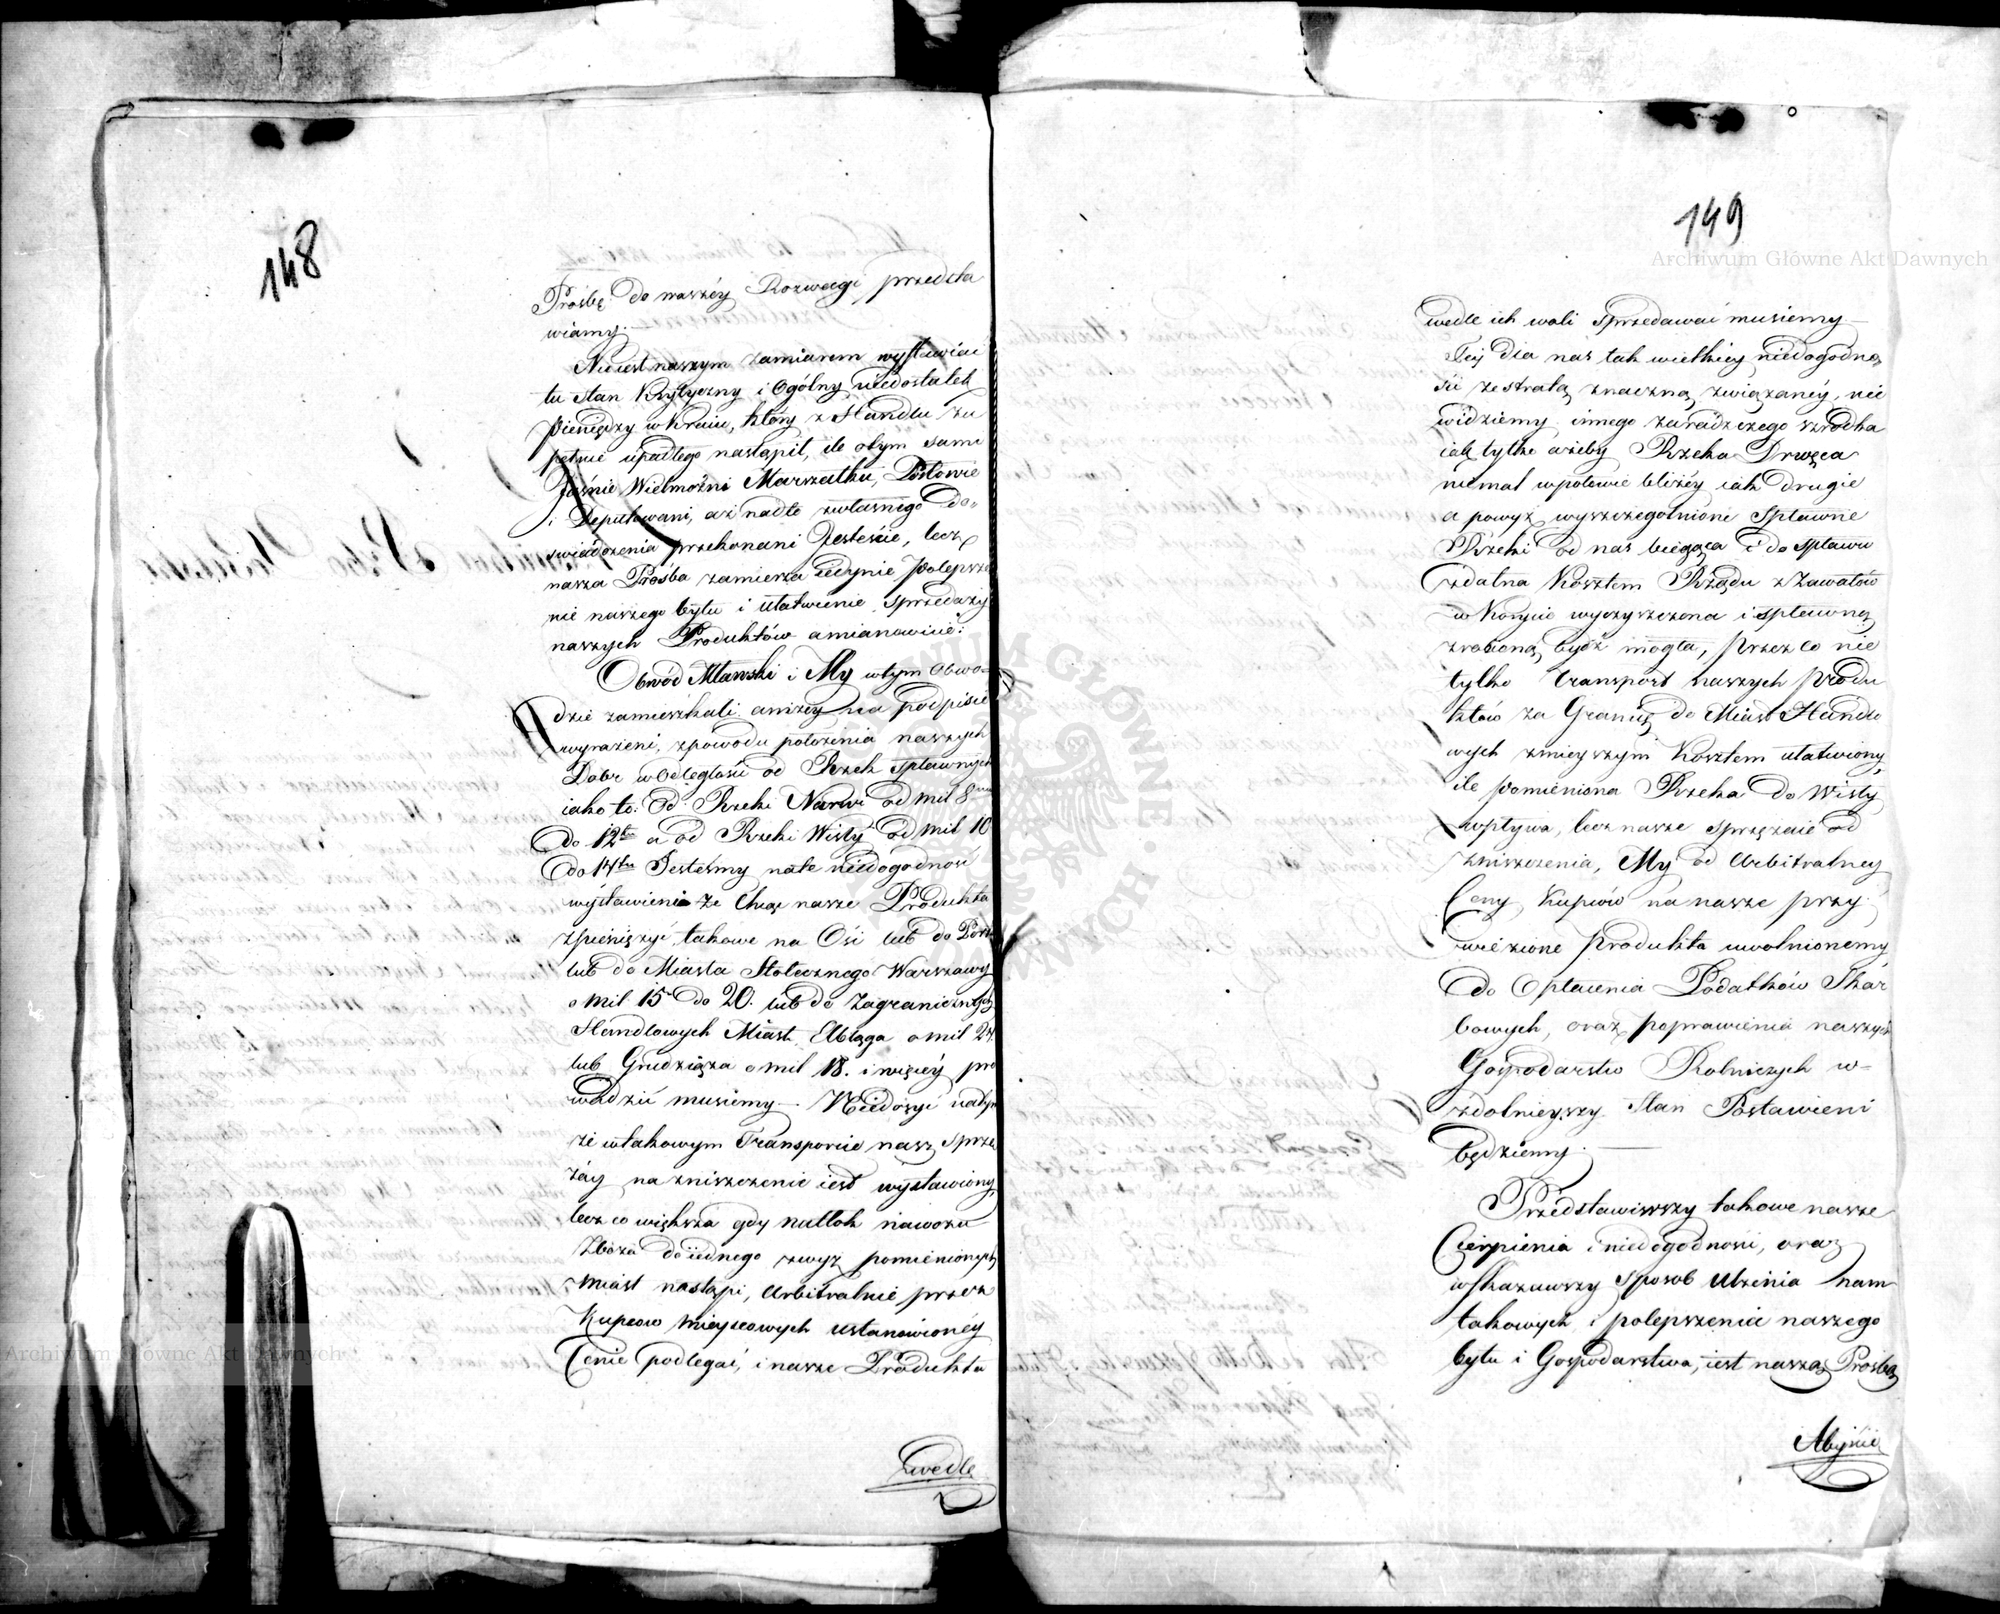 148
Prośbę do waszéy Rozwagi przedsta
wiamy.
Nieiest naszym zamiarem wystawiać
tu stan krytyczny i Ogólny niedostatek
pieniędzy w kraiu, który z Handlu zu
pełnie upadłego nastąpił, ile otym sami
Jaśnie Wielmożni Marszałku, Posłowie
i Deputowani, aż nadto zwłasnego do-
swiadczenia przekonani Jesteście, lecz
nasza Prośba zamierza iedynie polepsze
nie naszego bytu i ułatwienie sprzedaży
naszych Produktów amianowicie:
Obwód Mławski i My wtym Obwo-
dzie zamieszkali aniżey na podpisie
wyrażeni, zpowodu położenia naszych
Dobr w Odległości od Rzek spławnych
iako to: Od Rzeki Narwi od mil 8
do 12tu a od Rzeki Wisły od mil 10
do 14tu Jesteśmy nate niedogodność
wystawieni że Chcąc nasze Produkta
zpieniężyć, takowe na Osi lub do
lub do Miasta Stołecznego Warszawy
o mil 15 do 20. lub do Zagranicznych
Handlowych Miast Elbląga o mil 24.
lub Grudziąża o mil 18. i więcéy pro
wadzić musiemy. Niedosyć natym
że wtakowym Transporcie nasz sprzę
żay na zniszczenie iest wystawiony,
lecz co większa gdy natłok nawozu
Zboża do iednego zwyż pomienionych
miast nastąpi, arbitralnie przez
Kupców mieyscowych ustanowionéy
Cenie podlegać, i nasze Produkta
wedle
149
Archiwum Główne Akt Dawnych
wedle ich woli sprzedawać musiemy
Téj dla nas tak wielkiey niedogodno
ści ze stratą znaczną związanéy, nie
widziemy innego zaradczego szrodka
iak tylko ażeby Rzeka Drwęca
niemal wpołowie bliżéy iak drugie
a powyż wyszczegolnione Spławne
Rzeki od nas biegąca i do spławu
zdatna Kosztem Rządu z Zawałów
w Korycie wyczyszczona i spławną
zrobioną bydź mogła, przez co nie
tylko transport naszych produ
któw za Granicę do Miast Handlo
wych zmieyszym Kosztem ułatwiony
ile pomieniona Rzeka do Wisły
wpływa, lecz nasze sprzężaie od
zniszczenia, My od Arbitralney
Ceny Kupców na nasze przy
wiezione produkta uwolnionemy
do Opłacenia Podatków Skar
bowych, oraz poprawienia naszych
Gospodarstw Rolniczych w-
zdolnieyszy Stan Postawieni
będziemy.
Przedstawiwszy takowe nasze
Cierpienia i niedogodności, oraz
wskazawszy sposob ulżenia nam
takowych i polepszenia naszego
bytu i Gospodarstwa, iest naszą Prośbą
Abyście
Archiwum Główne Akt Dawnych